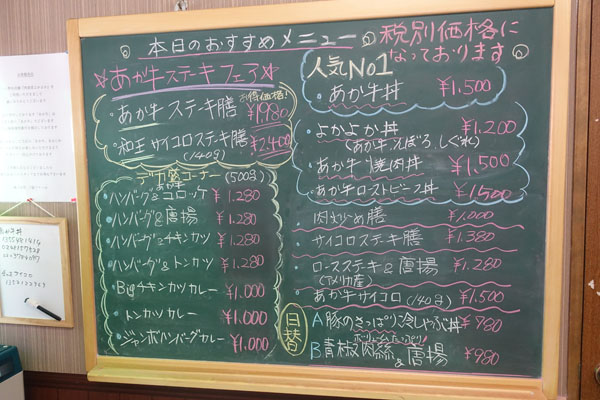 本日のおすすめメニュー
税別価格に
なっております
☆あか牛ステーキフェア☆
お得価格!
・あか牛ステーキ膳 ¥1,980
・和王サイコロステーキ膳 ¥2,400
(140g)
デカ盛コーナー (500g)
・ハンバーグ&コロッケ ¥1,280
・ハンバーグ&唐揚 ¥1,280
・ハンバーグ&チキンカツ ¥1,280
・ハンバーグ&トンカツ ¥1,280
・Bigチキンカツカレー ¥1,000
・トンカツカレー ¥1,000
・ジャンボハンバーグカレー ¥1,000
人気No1
・あか牛丼 ¥1,500
・よかよか丼 ¥1,200
(あか牛、そぼろ、しぐれ)
・あか牛焼肉丼 ¥1,500
・あか牛ローストビーフ丼 ¥1,500
・肉炒め膳 ¥1,000
・サイコロステーキ膳 ¥1,380
・ロースステーキ&唐揚 ¥1,280
(アメリカ産)
・あか牛サイコロ(140g) ¥1,500
日替
A 豚のさっぱり冷しゃぶ丼 ¥780
B 青椒肉絲&唐揚 ¥980